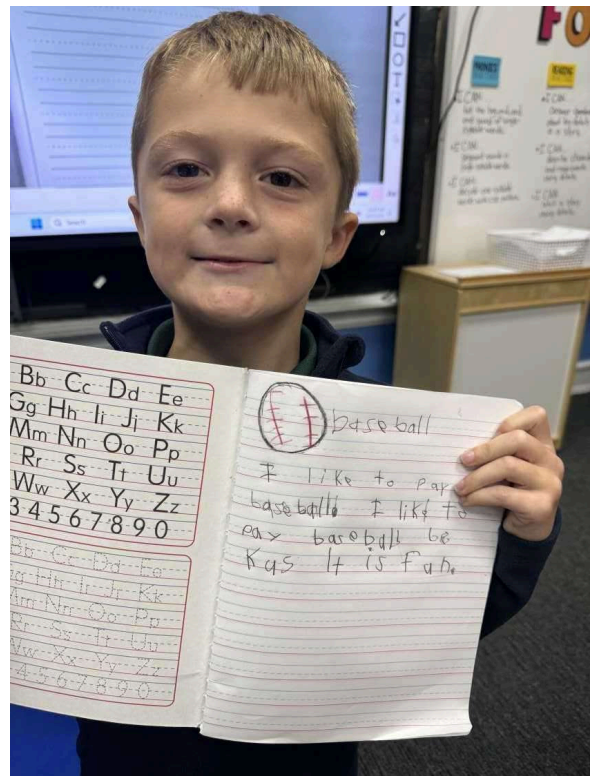 FO
PHONICS
READING
I CAN:
I CAN:
Search
Bb Cc Dd Ee
Gg Hh Ii Jj Kk
Mm Nn Oo Pp
Rr Ss Tt Uu
Ww Xx Yy Zz
3 4 5 6 7 8 9 0
Bb Cc Dd Ee
Gg Hh Ii Jj Kk
Mm Nn Oo Pp
Rr Ss Tt Uu
Ww Xx Yy Zz
4 5 6 7 8 9 0
baseball
I like to pay
baseball I like to
pay baseball be
kus It is fun.